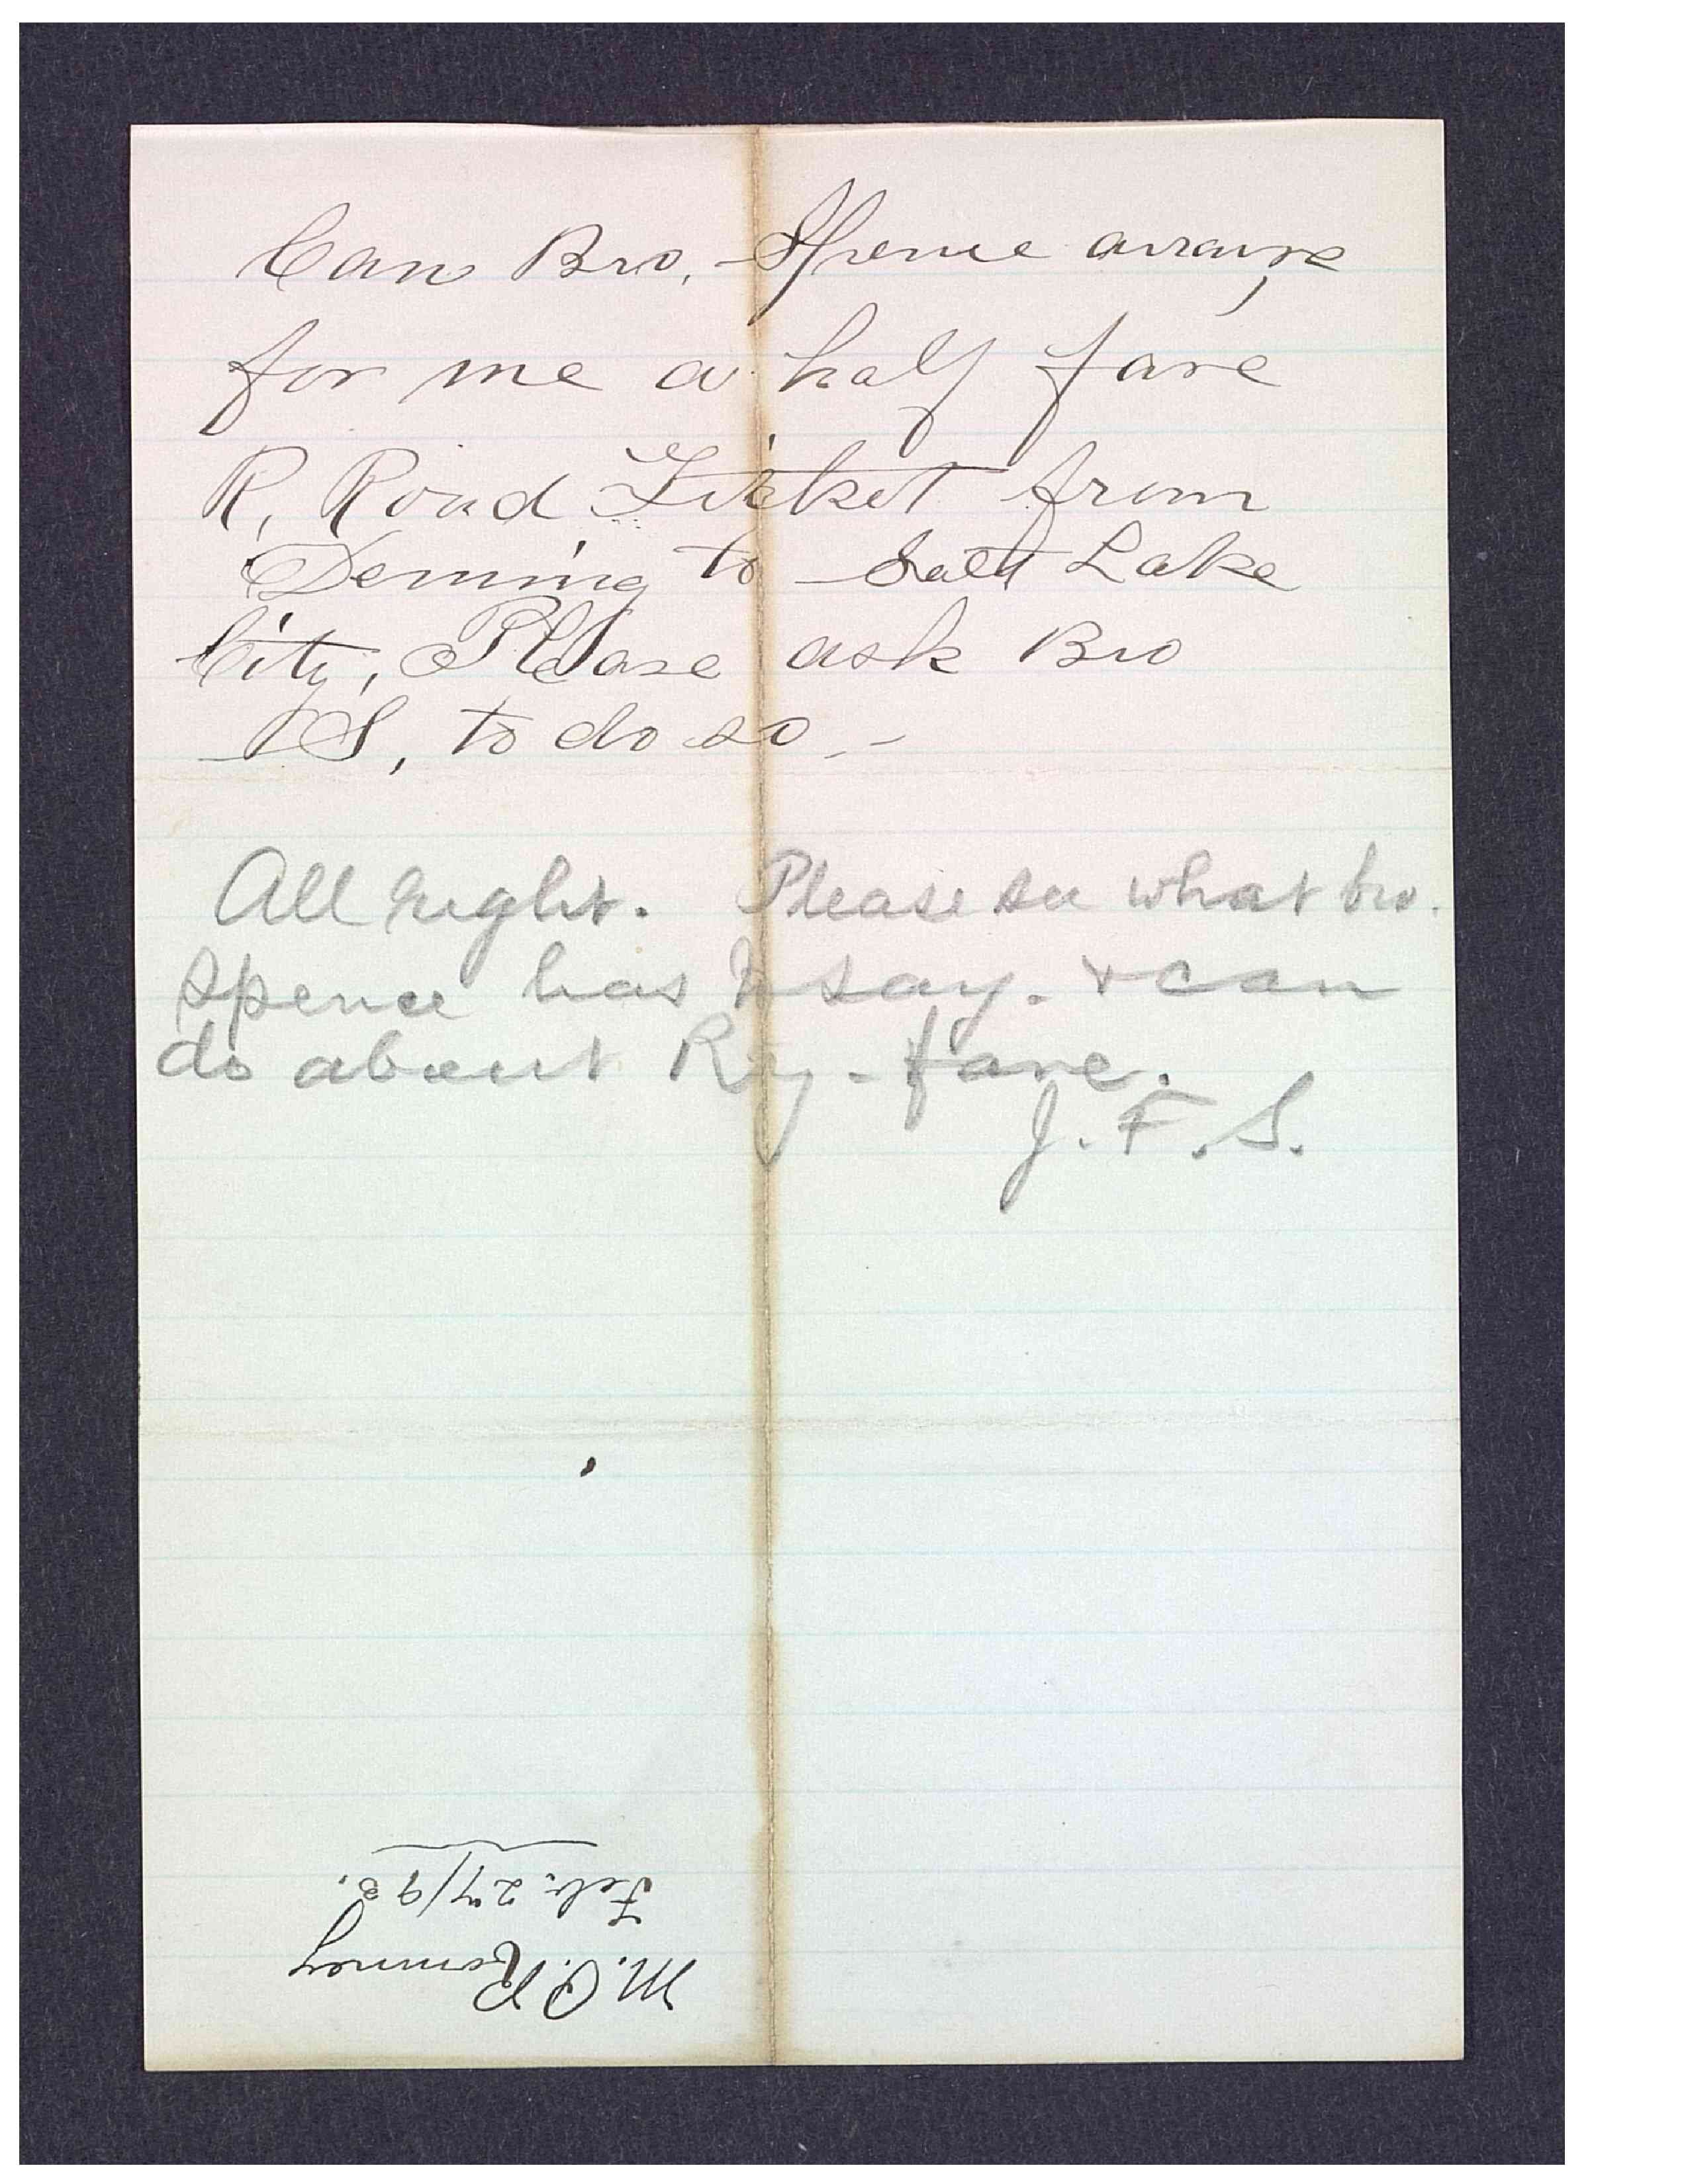 Can Bro. Spence arrange
for me a half fare
R, Road Ticket from
Deming to Salt Lake
City, Please ask Bro
S, to do so. -
All right. Please see what bro.
Spence has to say. & can
do about Ry-fare.
J. F. S.
M. P. Romney
Feb. 27/98.